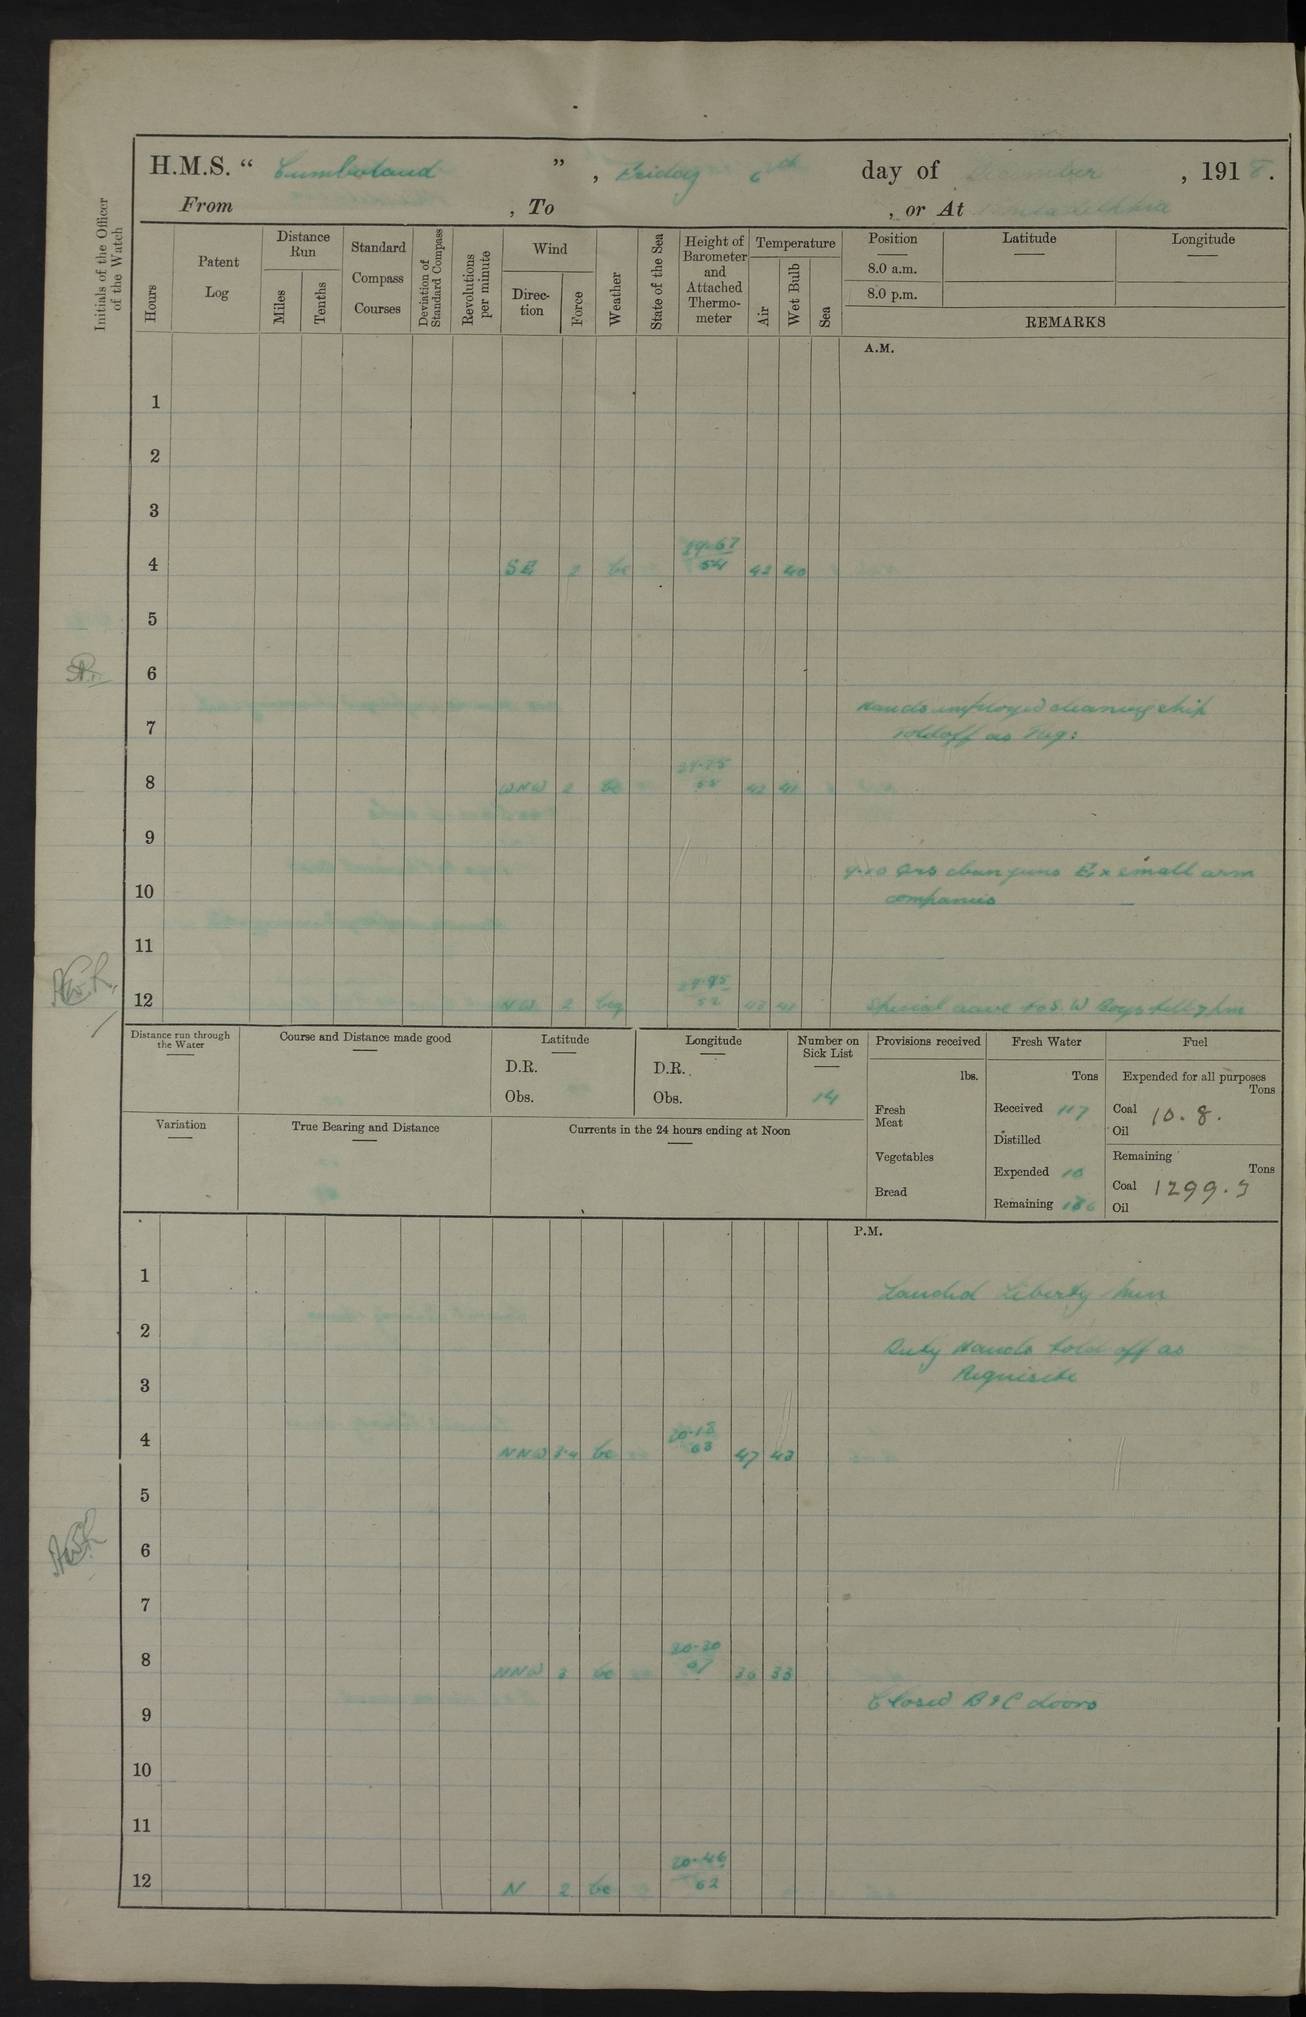 H.M.S. “ Cumberland ” , Friday 6th day of December , 1918.
From , To , or At
Initials of the Officer of the Watch
Hours
Patent Log
Distance Run
Miles
Tenths
Standard Compass Courses
Deviation of Standard Compass
Revolutions per minute
Wind
Direc-tion
Force
Weather
State of the Sea
Height of Barometer and Attached Thermo-meter
Temperature
Air
Wet Bulb
Sea
Position
8.0 a.m.
8.0 p.m.
Latitude
Longitude
REMARKS
A.M.
1
2
3
4 SE 2 bc 29.67 54 42 40
5
6
Hands employed cleaning ship
7 toldoff as req:
8 WNW 2 bc 55 42 41
9
Qrs clean guns Ex small arm
10 companies
11
12 NW 2 bcg 52 43 41 Special till 7 pm
Distance run through the Water
Course and Distance made good
Latitude
D.R.
Obs.
Longitude
D.R.
Obs.
Number on Sick List
14
Variation
True Bearing and Distance
Currents in the 24 hours ending at Noon
Provisions received
lbs.
Fresh Meat
Vegetables
Bread
Fresh Water
Tons
Received 117
Distilled
Expended 10
Remaining 186
Fuel
Expended for all purposes
Tons
Coal 10.8.
Oil
Remaining
Tons
Coal 1299.5
Oil
P.M.
1
Landed Liberty Men
2
Duty Hands told off as
3 Requisite
4 NNW 3.4 bc 30.18 63 47 43
5
6
7
8 NNW 3 bc 30.30 67 36 33
Closed B & C doors
9
10
11
12 N 2 bc 30.46 62